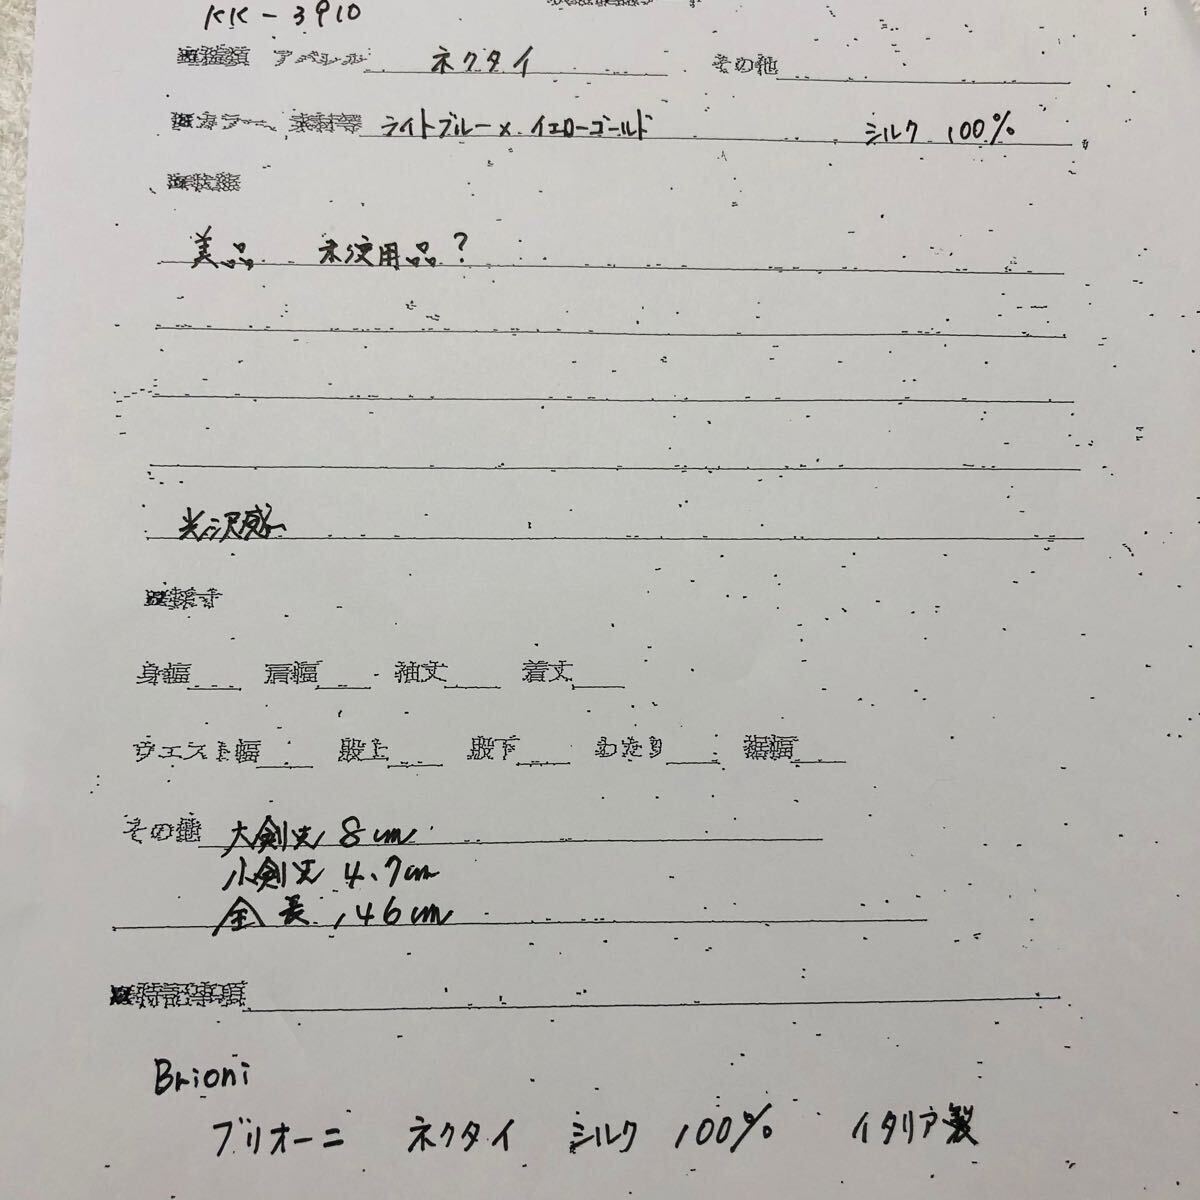 KK-3910
種類 アパレル ネクタイ その他
カラー、素材等 ライトブルー×イエローゴールド シルク 100%
状態
美品 未使用品?
光沢感
採寸
身幅 肩幅 袖丈 着丈
ウエスト幅 股上 股下 わたり 裾幅
その他 大剣先 8cm
小剣先 4.7cm
全長 146cm
特記事項
Brioni
ブリオーニ ネクタイ シルク 100% イタリア製